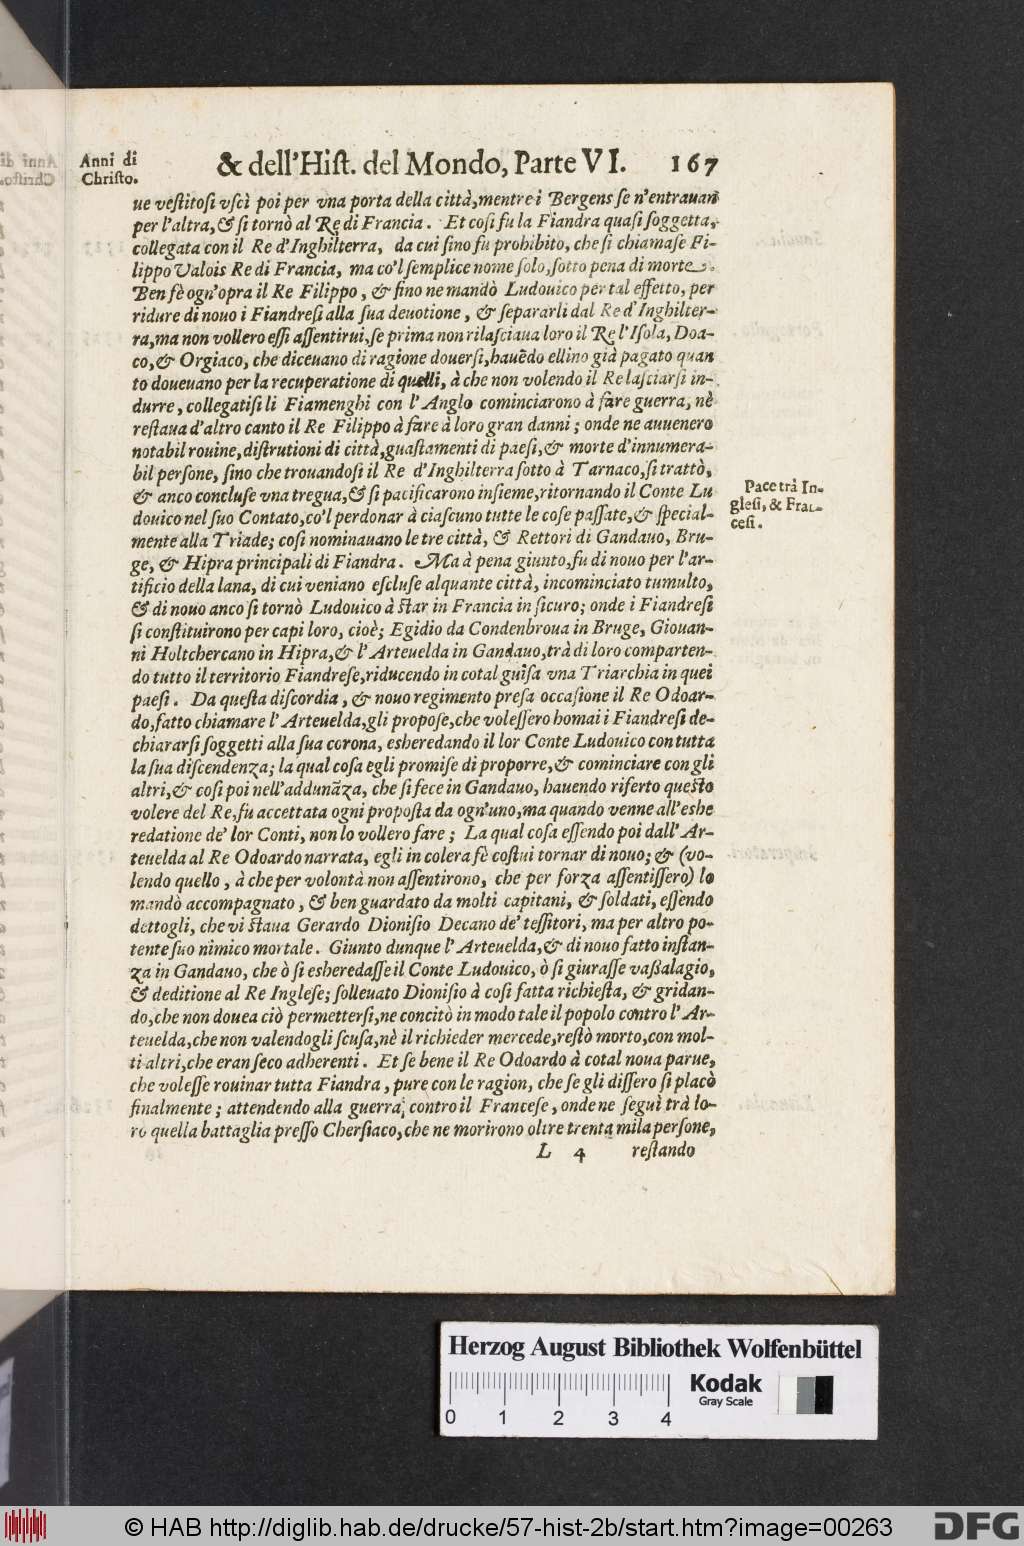 Anni di
Christo.
& dell'Hiſt. del Mondo, Parte VI. 167
ue veſtitoſi vſcì poi per vna porta della città, mentre i Bergens ſe n'entrauan
per l'altra, & ſi tornò al Re di Francia. Et coſi fu la Fiandra quaſi ſoggetta,
collegata con il Re d'Inghilterra, da cui ſino fu prohibito, che ſi chiamaſe Fi-
lippo Valois Re di Francia, ma co'l ſemplice nome ſolo, ſotto pena di morte.
Ben fè ogn'opra il Re Filippo, & fino ne mandò Ludouico per tal effetto, per
ridure di nouo i Fiandreſi alla ſua deuotione, & ſepararli dal Re d'Inghilter-
ra, ma non vollero eſſi aſſentirui, ſe prima non rilaſciaua loro il Re l'Iſola, Doa-
co, & Orgiaco, che diceuano di ragione douerſi, hauẽdo ellino già pagato quan
to doueuano per la recuperatione di quelli, à che non volendo il Re laſciarſi in-
durre, collegatiſi li Fiamenghi con l'Anglo cominciarono à fare guerra, nè
reſtaua d'altro canto il Re Filippo à fare à loro gran danni; onde ne auuenero
notabil rouine, diſtrutioni di città, guaſtamenti di paeſi, & morte d'innumera-
bil perſone, ſino che trouandoſi il Re d'Inghilterra ſotto à Tarnaco, ſi trattò,
& anco concluſe vna tregua, & ſi pacificarono inſieme, ritornando il Conte Lu
douico nel ſuo Contato, co'l perdonar à ciaſcuno tutte le coſe paſſate, & ſpecial-
mente alla Triade; coſi nominauano le tre città, & Rettori di Gandauo, Bru-
ge, & Hipra principali di Fiandra. Ma à pena giunto, fu di nouo per l'ar-
tificio della lana, di cui veniano eſcluſe alquante città, incominciato tumulto,
& di nouo anco ſi tornò Ludouico à ſtar in Francia in ſicuro; onde i Fiandreſi
ſi conſtituirono per capi loro, cioè; Egidio da Condenbroua in Bruge, Giouan-
ni Holtchercano in Hipra, & l'Arteuelda in Gandauo, trà di loro comparten-
do tutto il territorio Fiandreſe, riducendo in cotal guiſa vna Triarchia in quei
paeſi. Da queſta diſcordia, & nouo regimento preſa occaſione il Re Odoar-
do, fatto chiamare l'Arteuelda, gli propoſe, che voleſſero homai i Fiandreſi de-
chiararſi ſoggetti alla ſua corona, esheredando il lor Conte Ludouico con tutta
la ſua diſcendenza; la qual coſa egli promiſe di proporre, & cominciare con gli
altri, & coſi poi nell'addunãza, che ſi fece in Gandauo, hauendo riferto queſto
volere del Re, fu accettata ogni propoſta da ogn'uno, ma quando venne all'eshe
redatione de' lor Conti, non lo vollero fare; La qual coſa eſſendo poi dall'Ar-
teuelda al Re Odoardo narrata, egli in colera fè coſtui tornar di nouo; & (vo-
lendo quello, à che per volontà non aſſentirono, che per forza aſſentiſſero) lo
mandò accompagnato, & ben guardato da molti capitani, & ſoldati, eſſendo
dettogli, che vi ſtaua Gerardo Dioniſio Decano de' teſſitori, ma per altro po-
tente ſuo nimico mortale. Giunto dunque l'Arteuelda, & di nouo fatto inſtan-
za in Gandauo, che ò ſi esheredaſſe il Conte Ludouico, ò ſi giuraſſe vaſſalagio,
& deditione al Re Ingleſe; ſolleuato Dioniſio à coſi fatta richieſta, & gridan-
do, che non douea ciò permetterſi, ne concitò in modo tale il popolo contro l'Ar-
teuelda, che non valendogli ſcuſa, nè il richieder mercede, reſtò morto, con mol-
ti altri, che eran ſeco adherenti. Et ſe bene il Re Odoardo à cotal noua parue,
che voleſſe rouinar tutta Fiandra, pure con le ragion, che ſe gli diſſero ſi placò
finalmente; attendendo alla guerra, contro il Franceſe, onde ne ſeguì trà lo-
ro quella battaglia preſſo Cherſiaco, che ne morirono oltre trenta mila perſone,
L 4 reſtando
Pace trà In-
gleſi, & Fran-
ceſi.
Herzog August Bibliothek Wolfenbüttel
Kodak
Gray Scale
0 1 2 3 4
© HAB http://diglib.hab.de/drucke/57-hist-2b/start.htm?image=00263
DFG